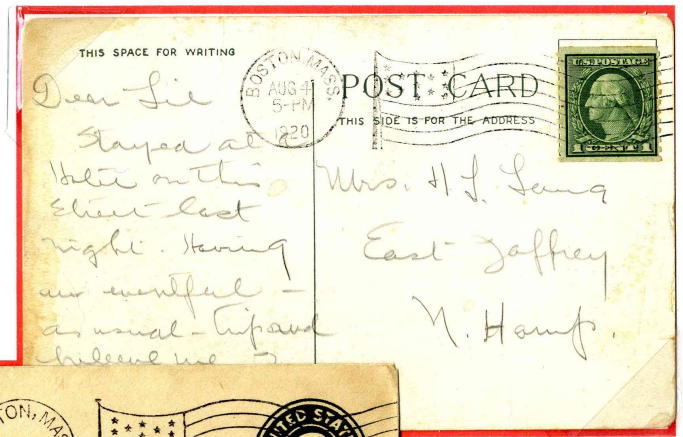 THIS SPACE FOR WRITING
BOSTON, MASS.
AUG 4
5-PM
1920
POST CARD
THIS SIDE IS FOR THE ADDRESS
U.S. POSTAGE
1 CENT 1
Dear Sie
Stayed at
Hotel on this
Street last
night. Having
an eventful -
as usual - trip and
believe me
Mrs. H L. Lang
East Jaffrey
N. Hamp.
TON, MAS
ITED STAT